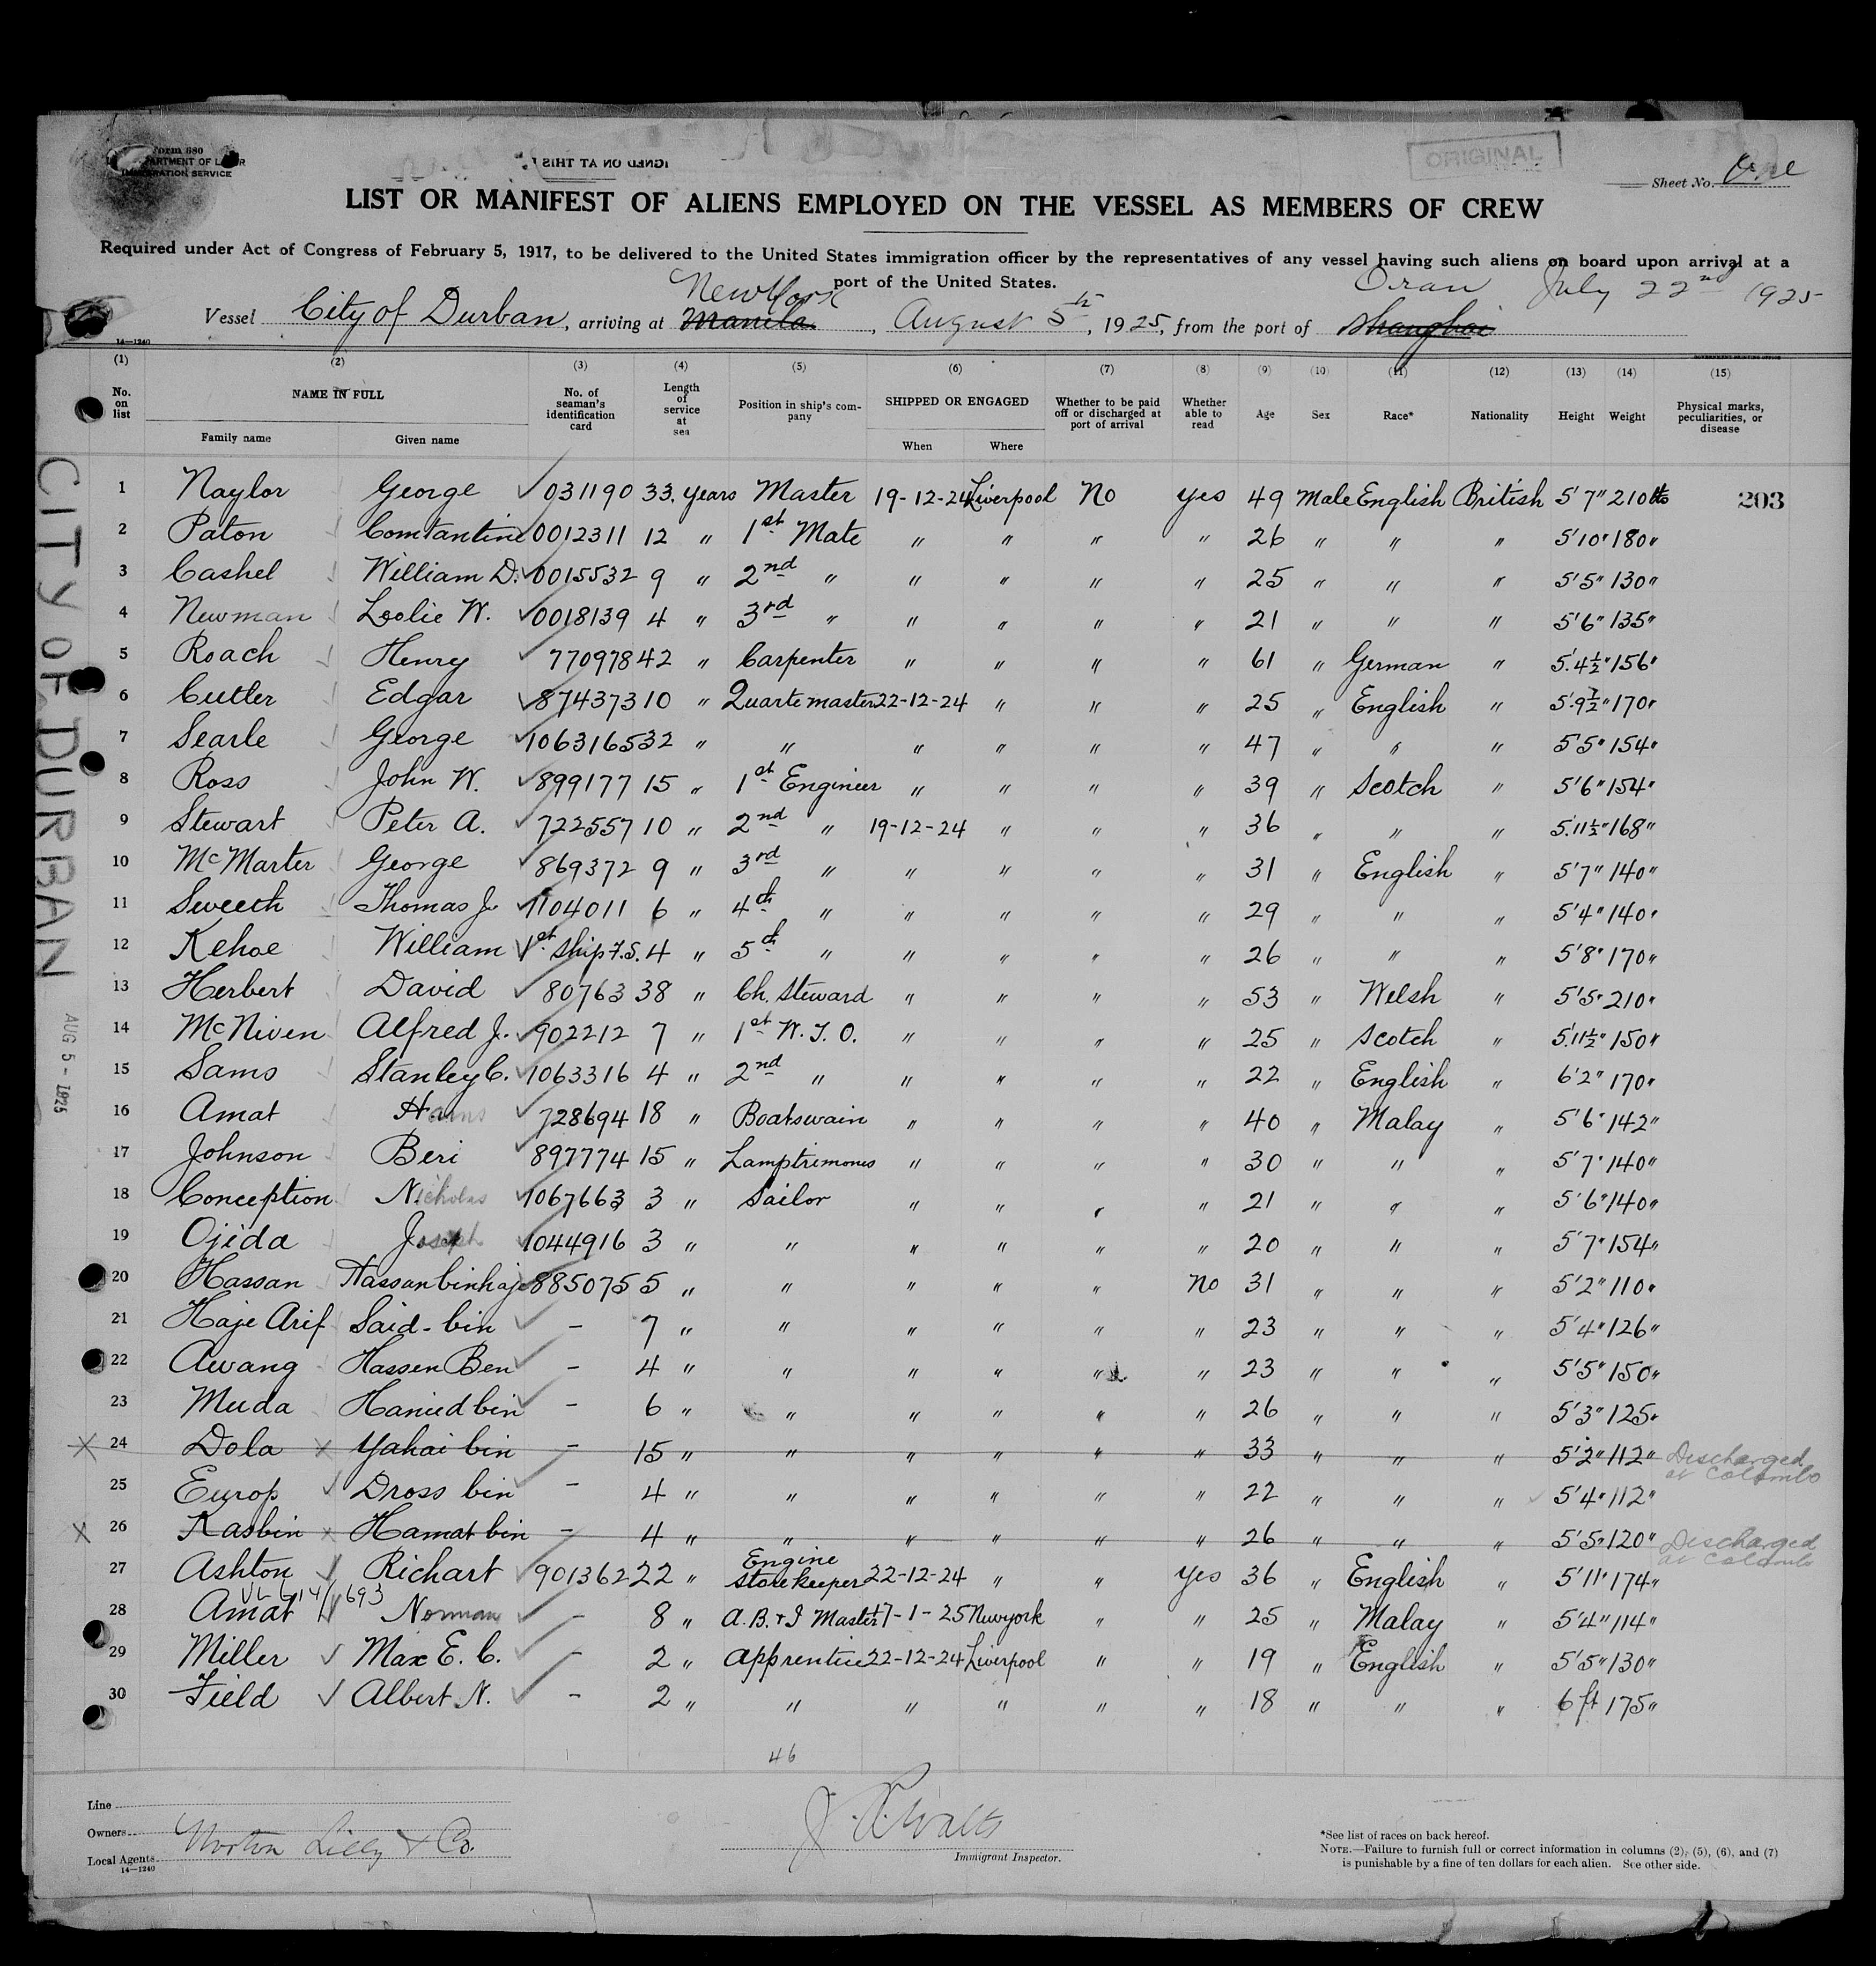 Form 680
DEPARTMENT OF LABOR
IMMIGRATION SERVICE
SIGNED ON AT THIS
ORIGINAL
Sheet No. One
LIST OR MANIFEST OF ALIENS EMPLOYED ON THE VESSEL AS MEMBERS OF CREW
Required under Act of Congress of February 5, 1917, to be delivered to the United States immigration officer by the representatives of any vessel having such aliens on board upon arrival at a
port of the United States.
New York Oran July 22nd 1925
Vessel City of Durban, arriving at Manila, August 5th, 1925, from the port of Shanghai
14—1240
(1) (2) (3) (4) (5) (6) (7) (8) (9) (10) (11) (12) (13) (14) (15)
No. on list NAME IN FULL Family name Given name No. of seaman's identification card Length of service at sea Position in ship's company SHIPPED OR ENGAGED When Where Whether to be paid off or discharged at port of arrival Whether able to read Age Sex Race* Nationality Height Weight Physical marks, peculiarities, or disease
1 Naylor George 031190 33 years Master 19-12-24 Liverpool No Yes 49 Male English British 5'7" 210 lbs 203
2 Paton Constantine 0012311 12 " 1st Mate " " " " 26 " " " 5'10" 180 "
3 Cashel William D. 0015532 9 " 2nd " " " " " 25 " " " 5'5" 130 "
4 Newman Leslie W. 0018139 4 " 3rd " " " " " 21 " " " 5'6" 135 "
5 Roach Henry 770978 42 " Carpenter " " " " 61 " German " 5'4½" 156 "
6 Cutler Edgar 874373 10 " Quartemaster 22-12-24 " " " 25 " English " 5'9½" 170 "
7 Searle George 1063165 32 " " " " " " 47 " " " 5'5" 154 "
8 Ross John W. 899177 15 " 1st Engineer " " " " 39 " Scotch " 5'6" 154 "
9 Stewart Peter A. 722557 10 " 2nd " 19-12-24 " " " 36 " " " 5'11½" 168 "
10 McMarter George 869372 9 " 3rd " " " " " 31 " English " 5'7" 140 "
11 Sweech Thomas J. 1104011 6 " 4th " " " " " 29 " " " 5'4" 140 "
12 Kehoe William 1st Ship F.S. 4 " 5th " " " " " 26 " " " 5'8" 170 "
13 Herbert David 80763 38 " Ch. Steward " " " " 53 " Welsh " 5'5" 210 "
14 McNiven Alfred J. 902212 7 " 1st W.T.O. " " " " 25 " Scotch " 5'11½" 150 "
15 Sams Stanley C. 1063316 4 " 2nd " " " " " 22 " English " 6'2" 170 "
16 Amat 728694 18 " Boatswain " " " " 40 " Malay " 5'6" 142 "
17 Johnson Beri 897774 15 " Lamptrimones " " " " 30 " " " 5'7" 140 "
18 Conception Nicholas 1067663 3 " Sailor " " " " 21 " " " 5'6" 140 "
19 Ojida Joseph 1044916 3 " " " " " " 20 " " " 5'7" 154 "
20 Hassan Hassan bin haje 885075 5 " " " " " No 31 " " " 5'2" 110 "
21 Haje Arif Said - bin – 7 " " " " " " 23 " " " 5'4" 126 "
22 Awang Hassen Ben – 4 " " " " " " 23 " " " 5'5" 150 "
23 Muda Hamid bin – 6 " " " " " " 26 " " " 5'3" 125 "
X 24 Dola x Yahai bin – 15 " " " " " " 33 " " " 5'2" 112 " Discharged at Colombo
25 Europ Dross bin – 4 " " " " " " 22 " " " 5'4" 112 "
X 26 Kasbin x Hamat bin – 4 " " " " " " 26 " " " 5'5" 120 " Discharged at Colombo
27 Ashton Richart 901362 22 " Engine Storekeeper 22-12-24 " " Yes 36 " English " 5'11" 174 "
28 Amat Norman – 8 " A.B. + I Master 17-1-25 Newyork " " 25 " Malay " 5'4" 114 "
29 Miller Max E. C. – 2 " Apprentice 22-12-24 Liverpool " " 19 " English " 5'5" 130 "
30 Field Albert N. – 2 " " " " " " 18 " " " 6 ft 175 "
CITY OF DURBAN
AUG 5 - 1925
46
Line
Owners
Local Agents Norton Lilly & Co.
14—1240
Immigrant Inspector.
*See list of races on back hereof.
NOTE.—Failure to furnish full or correct information in columns (2), (5), (6), and (7)
is punishable by a fine of ten dollars for each alien. See other side.